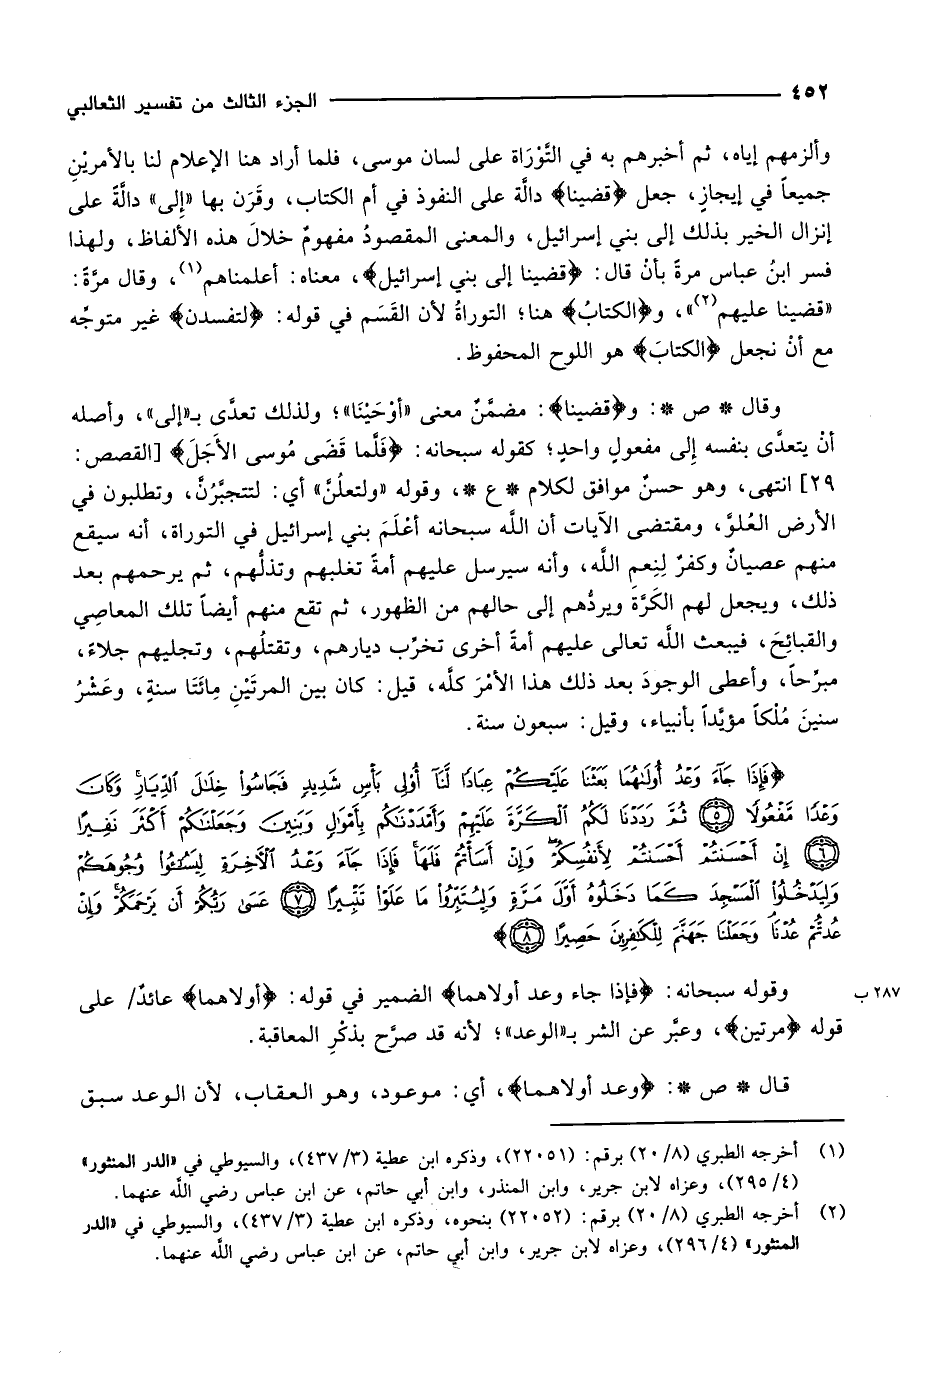 ٤٥٢ ــــــــــــــــــــــــ الجزء الثالث من تفسير الثعالبي
وألزمهم إياه، ثم أخبرهم به في التَّوْرَاة على لسان موسى، فلما أراد هنا الإعلام لنا بالأمريْنِ
جميعاً في إيجازٍ، جعل ﴿قضينا﴾ دالَّة على النفوذ في أم الكتاب، وقَرَن بها «إِلى» دالَّةً على
إنزال الخير بذلك إلى بني إسرائيل، والمعنى المقصودُ مفهومٌ خلالَ هذه الألفاظ، ولهذا
فسر ابنُ عباس مرةً بأنْ قال: ﴿قضينا إلى بني إسرائيل﴾، معناه: أعلمناهم(١)، وقال مرَّةً:
«قضينا عليهم(٢)»، و﴿الكتابُ﴾ هنا؛ التوراةُ لأن القَسَم في قوله: ﴿لتفسدن﴾ غير متوجِّه
مع أنْ نجعل ﴿الكتابَ﴾ هو اللوح المحفوظ.
وقال * ص *: و﴿قضينا﴾: مضمَّنٌ معنى «أوْحَيْنَا»؛ ولذلك تعدَّى بـ«إلى»، وأصله
أنْ يتعدَّى بنفسه إِلى مفعولٍ واحدٍ؛ كقوله سبحانه: ﴿فَلَّما قَضَى مُوسى الأَجَلَ﴾ [القصص:
٢٩] انتهى، وهو حسنٌ موافق لكلام * ع *، وقوله «ولتعلُنَّ» أي: لتتجبَّرُنَّ، وتطلبون في
الأرض العُلوَّ، ومقتضى الآيات أن اللَّه سبحانه أعْلَمَ بني إسرائيل في التوراة، أنه سيقع
منهم عصيانٌ وكفرٌ لِنِعمِ اللَّه، وأنه سيرسل عليهم أمةً تغلبهم وتذلُّهم، ثم يرحمهم بعد
ذلك، ويجعل لهم الكَرَّةَ ويردُّهم إلى حالهم من الظهور، ثم تقع منهم أيضاً تلك المعاصِي
والقبائِحَ، فيبعث اللَّه تعالى عليهم أمةً أخرى تخرِّب ديارهم، وتقتلُهم، وتجليهم جلاءً،
مبرِّحاً، وأعطى الوجودَ بعد ذلك هذا الأمْرَ كلَّه، قيل: كان بين المرتَيْنِ مِائَتَا سنةٍ، وعَشْرُ
سنينَ مُلْكاً مؤيَّداً بأنبياء، وقيل: سبعون سنة.
﴿فَإِذَا جَاءَ وَعْدُ أُولَىٰهُمَا بَعَثْنَا عَلَيْكُمْ عِبَادًا لَّنَا أُوْلِي بَأْسٍ شَدِيدٍ فَجَاسُوا۟ خِلَـٰلَ ٱلدِّيَارِ وَكَانَ
وَعْدًا مَّفْعُولًا ٥ ثُمَّ رَدَدْنَا لَكُمُ ٱلْكَرَّةَ عَلَيْهِمْ وَأَمْدَدْنَـٰكُم بِأَمْوَٰلٍ وَبَنِينَ وَجَعَلْنَـٰكُمْ أَكْثَرَ نَفِيرًا
٦ إِنْ أَحْسَنتُمْ أَحْسَنتُمْ لِأَنفُسِكُمْ وَإِنْ أَسَأْتُمْ فَلَهَا فَإِذَا جَاءَ وَعْدُ ٱلْأَخِرَةِ لِيَسُـۥٓـُٔوا۟ وُجُوهَكُمْ
وَلِيَدْخُلُوا۟ ٱلْمَسْجِدَ كَمَا دَخَلُوهُ أَوَّلَ مَرَّةٍ وَلِيُتَبِّرُوا۟ مَا عَلَوْا۟ تَتْبِيرًا ٧ عَسَىٰ رَبُّكُمْ أَن يَرْحَمَكُمْ وَإِنْ
عُدتُّمْ عُدْنَا وَجَعَلْنَا جَهَنَّمَ لِلْكَـٰفِرِينَ حَصِيرًا ٨﴾
وقوله سبحانه: ﴿فإذا جاء وعد أولاهما﴾ الضمير في قوله: ﴿أولاهما﴾ عائدٌ/ على ٢٨٧ ب
قوله ﴿مرتين﴾، وعبَّر عن الشر بـ«الوعد»؛ لأنه قد صرَّح بذكْرِ المعاقبة.
قال * ص *: ﴿وعد أولاهما﴾، أي: موعود، وهو العقاب، لأن الوعد سبق
(١) أخرجه الطبري (٨/ ٢٠) برقم: (٢٢٠٥١)، وذكره ابن عطية (٣/ ٤٣٧)، والسيوطي في «الدر المنثور»
(٤/ ٢٩٥)، وعزاه لابن جرير، وابن المنذر، وابن أبي حاتم، عن ابن عباس رضي اللَّه عنهما.
(٢) أخرجه الطبري (٨/ ٢٠) برقم: (٢٢٠٥٢) بنحوه، وذكره ابن عطية (٣/ ٤٣٧)، والسيوطي في «الدر
المنثور» (٤/ ٢٩٦)، وعزاه لابن جرير، وابن أبي حاتم، عن ابن عباس رضي اللَّه عنهما.